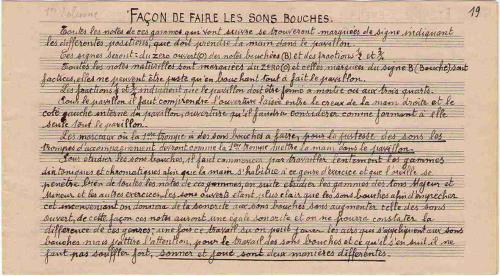 19
FAÇON DE FAIRE LES SONS BOUCHÉS.
Toutes les notes de ces gammes qui vont suivre se trouveront marquées de signe, indiquant
les différentes positions, que doit prendre la main dans le pavillon.
Ces signes seront: du zéro ouvert (o) des notes bouchées (B) et des fractions ½ et ¾
Toutes les notes naturelles sont marquées du zéro (o) et celles marquées du signe B (Bouché) sont
factices, elles ne peuvent être juste qu'en bouchant tout à fait le pavillon.
Les fractions ½ et ¾ indiquent que le pavillon doit être fermé à moitié ou aux trois quarts.
Pour le pavillon il faut comprendre l'ouverture laissée entre le creux de la main droite et le
coté gauche interne du pavillon, ouverture qu'il faudra considérer comme formant à elle
seule tout le pavillon.
Les morceaux où la 1ère trompe a des sons bouchés à faire, pour la justesse des sons les
trompes d'accompagnement devront comme la 1ère trompe mettre la main dans le pavillon.
Pour étudier les sons bouchés, il faut commencer par travailler lentement les gammes
diatoniques et chromatiques afin que la main s'habitue à ce genre d'exercice et que l'oreille se
pénètre bien de toutes les notes de ces gammes, en suite étudier les gammes des tons Majeur et
Mineur et les autres exercices, les sons ouverts étant plus clairs que les sons bouchés afin d'empêcher
cet inconvénient on donnera de la sonorité aux sons bouchés sans augmenter celle des sons
ouvert, de cette façon ces notes auront une égale sonorité et on ne pourra constater la
différence de ces genres; une fois ce travail su on peut jouer les airs qui s'appliquent aux sons
bouchés mais mettre l'attention, pour le travail des sons bouchés et ce qu'il s'en suit il ne
faut pas souffler fort, sonner et joué sont deux manières différentes.